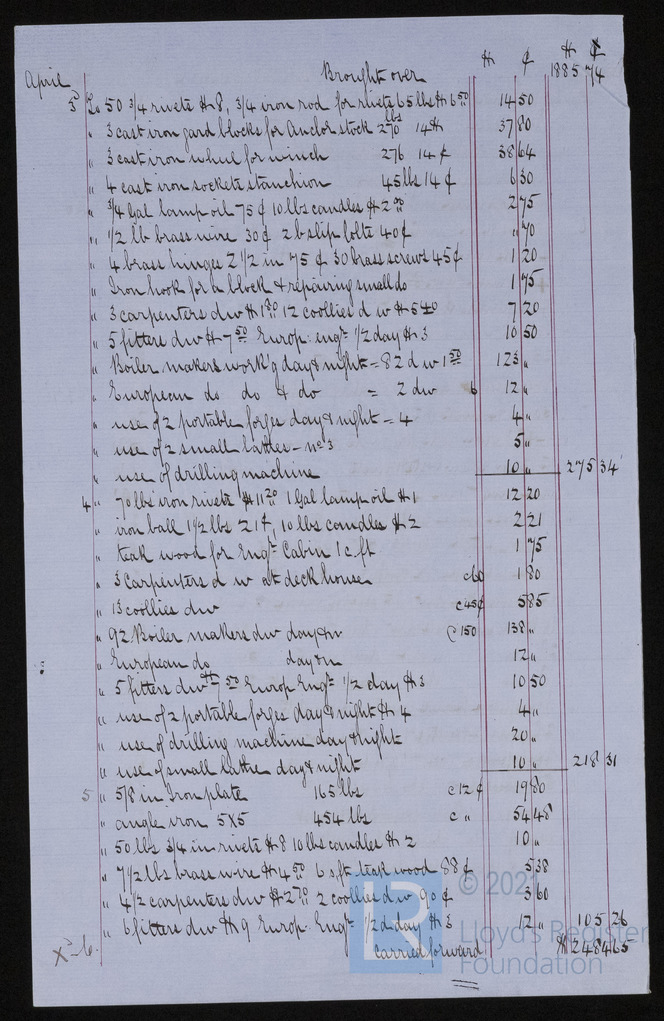 $ ¢ $ ¢
April Brought over 1885 74
3 To 50 3/4 rivets $8, 3/4 iron rod for rivets 65 lbs $6.50 14 50
" 3 cast iron yard blocks for Anchor stock 270 lbs 14 37 80
" 3 cast iron wheel for winch 276 14 ¢ 38 64
" 4 cast iron sockets stanchion 45 lbs 14 ¢ 6 30
" 3/4 Gal lamp oil 75 ¢ 10 lbs candles $2.00 2 75
" 1/2 lb brass wire 30 ¢ 2 b slip bolts 40 ¢ " 70
" 4 brass hinges 2 1/2 in 75 ¢ 30 brass screws 45 ¢ 1 20
" Iron hook for a block & repairing small do 1 75
" 3 carpenters dw $1.80 12 coollies d w $5.40 7 20
" 5 fitters dw $7.50 Europ: engr 1/2 day $3 10 50
" Boiler makers work'g day & night = 82 d w 1.50 123 "
" European do do & do = 2 dw 6 12 "
" use of 2 portable forges day & night = 4 4 "
" use of 2 small lathes - no 3 5 "
" use of drilling machine 10 " 275 34
4 " 70 lbs iron rivets $11.20 1 Gal lamp oil $1 12 20
" iron ball 1 1/2 lbs 21 ¢, 10 lbs candles $2 2 21
" teak wood for Engr Cabin 1 c ft 1 75
" 3 Carpenters d w at deck house c 60 1 80
" 13 coollies dw c 45 ¢ 5 85
" 92 Boiler makers dw day & n c 150 138 "
" European do day & n 12 "
" 5 fitters dw $7.50 Europ Engr 1/2 day $3 10 50
" use of 2 portable forges day & night $4 4 "
" use of drilling machine day & night 20 "
" use of small lathe day & night 10 " 218 31
5 " 5/8 in Iron plate 165 lbs c 12 ¢ 19 80
" angle iron 5X5 454 lbs c " 54 48
" 50 lbs 3/4 in rivets $8 10 lbs candles $2 10 "
" 7 1/2 lbs brass wire $4.50 6 s ft teak wood 88 ¢ 5 38
" 4 1/2 carpenters dw $2.70 2 coollies d w 90 ¢ 3 60
" 6 fitters dw $9 Europ. Engr 1/2 d day $3 12 " 105 26
X - 6 - carried forward $ 2484 65
LR © 2021
Lloyd's Register
Foundation